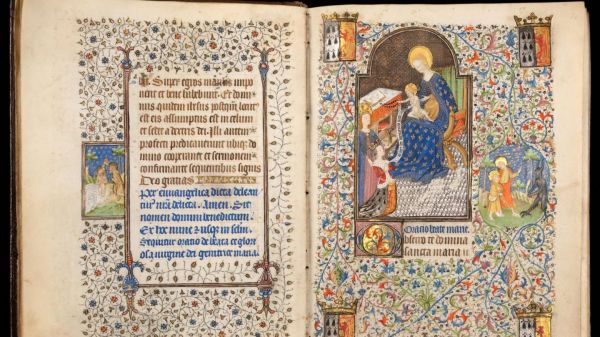 Super egros manus impo
nent et bene habebunt. Et domi
nus quidem ihesus postquam locut
est eis assumptus est in celum
et sedet a dextris dei. Illi autem
profecti predicaverunt ubiq; do
mino cooperante et sermonem
confirmante sequentibus signis
Deo gratias
Per evvangelica dicta delean
tur nra delicta. Amen. Sit
nomen domini benedictum.
Ex hoc nunc & usq; in seclm.
Sequitur oratio de beata et glori
osa virgine dei genitrice maria.
Oratio beate marie.
Obsecro te domina
sancta maria